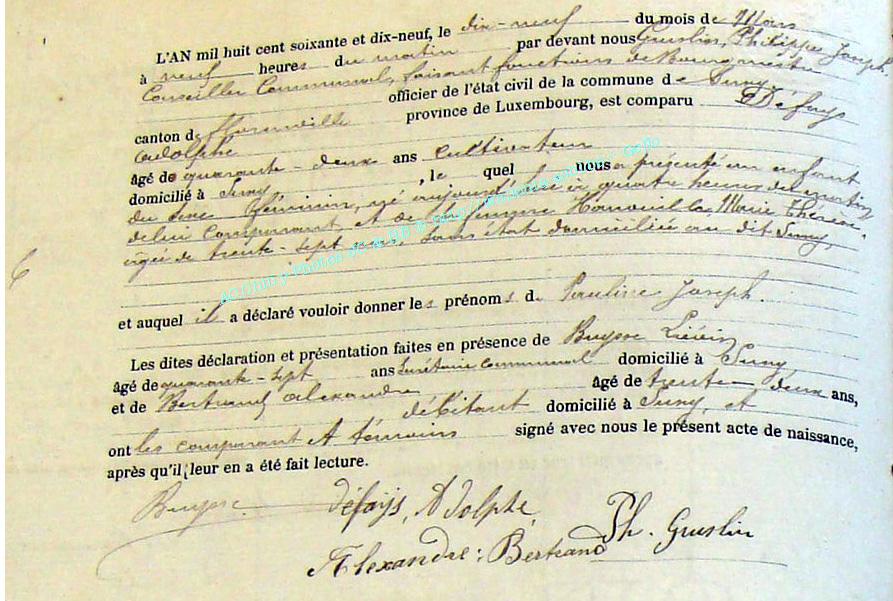 L'AN mil huit cent soixante et dix-neuf, le dix-neuf du mois de Mars
à neuf heures du matin par devant nous Guislin, Philippe Joseph
Conseiller Communal, faisant fonctions de Bourgmestre
officier de l'état civil de la commune de Suny
canton de Florenville province de Luxembourg, est comparu Défays
Adolphe
âgé de quarante-deux ans cultivateur
domicilié à Suny, le quel nous a présenté un enfant
du sexe féminin, né aujourd'hui à quatre heures du matin
de lui comparant et de Marie Thérèse,
âgée de trente-sept ans, sans état domiciliée au dit Suny,
et auquel il a déclaré vouloir donner les prénoms de Pauline Joseph.
Les dites déclaration et présentation faites en présence de Buysse Liévin
âgé de quarante-sept ans Secrétaire Communal domicilié à Suny
et de Bertrand Alexandre âgé de trente-deux ans,
débitant domicilié à Suny, et
ont les comparant et témoins signé avec nous le présent acte de naissance,
après qu'il leur en a été fait lecture.
Buysse. Défays, Adolphe,
Alexandre: Bertrand Ph. Guislin